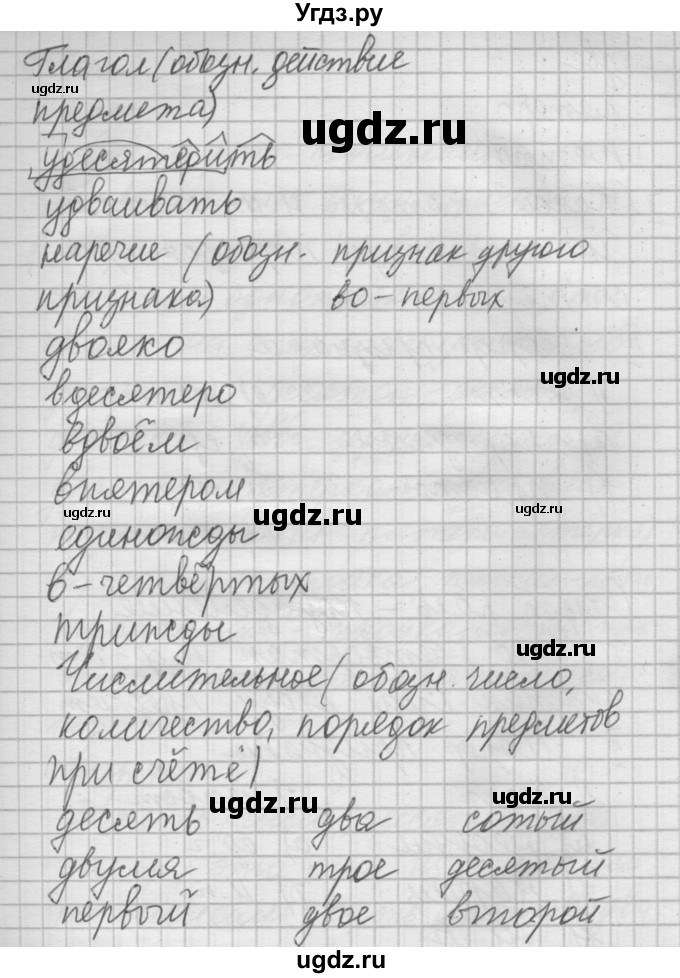 Угдз.ру
Глагол (обозн. действие
ugdz.ru
предмета)
ugdz.ru
удесятерить
удваивать
наречие (обозн. признак другого
признака) во-первых
двояко
ugdz.ru
вдесятеро
вдвоём
впятером
ugdz.ru ugdz.ru
единожды
в-четвёртых
трижды
ugdz.ru
Числительное (обозн. число,
количество, порядок предметов
при счёте)
ugdz.ru ugdz.ru
десять два сотый
двумя трое десятый
первый двое второй
ugdz.ru